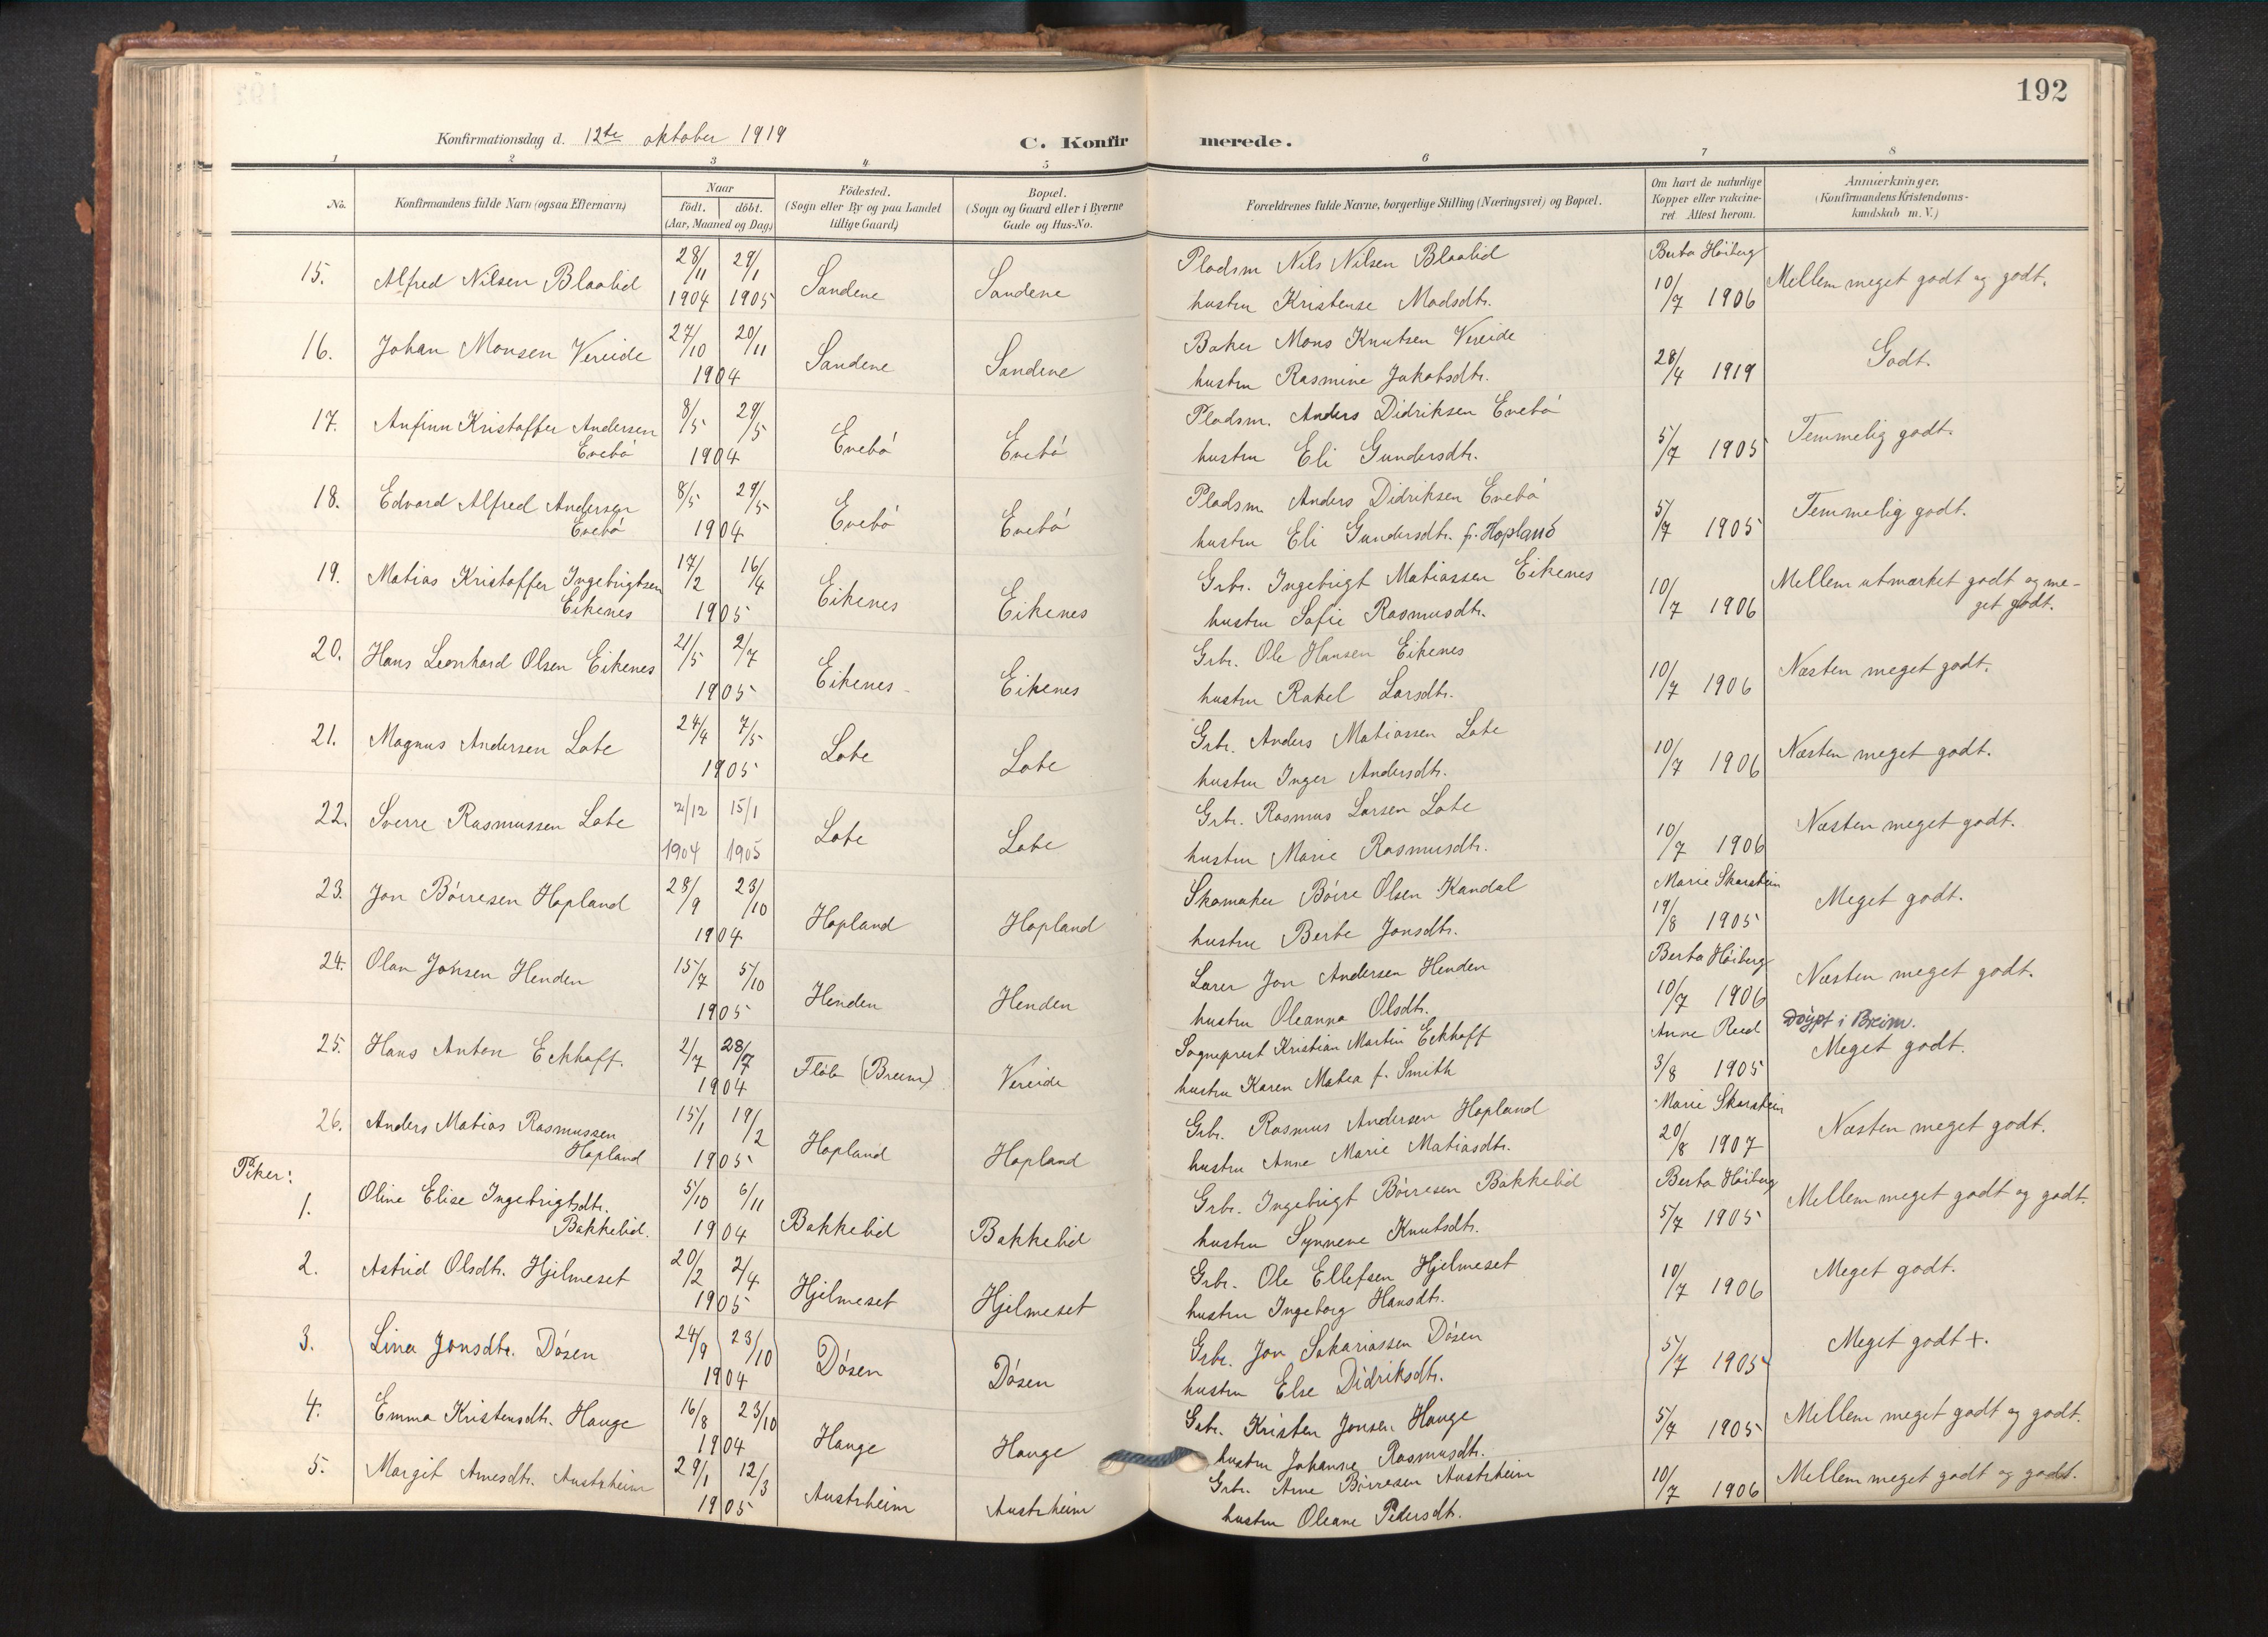 192
Konfirmationsdag d. 12te oktober 1919
C. Konfirmerede.
1 2 3 4 5 6 7 8
No.
Konfirmandens fulde Navn (ogsaa Efternavn)
Naar
født. døbt.
(Aar, Maaned og Dag)
Fødested.
(Sogn eller By og paa Landet
tillige Gaard)
Bopæl.
(Sogn og Gaard eller i Byerne
Gade og Hus-No.
Forældrenes fulde Navne, borgerlige Stilling (Næringsvei) og Bopæl.
Om havt de naturlige
Kopper eller vakcine-
ret Attest herom.
Anmærkninger.
(Konfirmandens Kristendoms-
kundskab m. V.)
15. Alfred Nilsen Blaalid 28/11 1904 29/1 1905 Sandene Sandene
Pladsm Nils Nilsen Blaalid
hustru Kristense Madsdtr.
Berta Höiberg
10/7 1906 Mellem meget godt og godt.
16. Johan Monsen Vereide 27/10 20/11 1904 Sandene Sandene
Baker Mons Knutsen Vereide
hustru Rasmine Jakobsdtr.
28/4 1919 Godt.
17. Anfinn Kristoffer Andersen
Evebö 8/5 29/5 1904 Evebö Evebö
Pladsm. Anders Didriksen Evebö
hustru Eli Gundersdtr.
5/7 1905 Temmelig godt.
18. Edvard Alfred Andersen
Evebö 8/5 29/5 1904 Evebö Evebö
Pladsm Anders Didriksen Evebö
hustru Eli Gundersdtr. f. Hopland
5/7 1905 Temmelig godt.
19. Matias Kristoffer Ingebrigtsen
Eikenes 17/2 16/4 1905 Eikenes Eikenes
Grbr. Ingebrigt Matiassen Eikenes
hustru Sofie Rasmusdtr.
10/7 1906 Mellem utmærket godt og me-
get godt.
20. Hans Leonhard Olsen Eikenes 21/5 2/7 1905 Eikenes Eikenes
Grbr. Ole Hansen Eikenes
hustru Rakel Larsdtr.
10/7 1906 Næsten meget godt.
21. Magnus Andersen Lote 24/4 7/5 1905 Lote Lote
Grbr. Anders Matiassen Lote
hustru Inger Andersdtr.
10/7 1906 Næsten meget godt.
22. Sverre Rasmussen Lote 2/12 1904 15/1 1905 Lote Lote
Grbr. Rasmus Larsen Lote
hustru Marie Rasmusdtr.
10/7 1906 Næsten meget godt.
23. Jon Börresen Hopland 28/9 23/10 1904 Hopland Hopland
Skomaker Börre Olsen Kandal
hustru Berte Jonsdtr.
Marie Skarstein
19/8 1905 Meget godt.
24. Olav Jonsen Henden 15/7 5/10 1905 Henden Henden
Lærer Jon Andersen Henden
hustru Oleanna Olsdtr.
Berta Höiberg
10/7 1906 Næsten meget godt.
25. Hans Anton Eckhoff. 2/7 28/7 1904 (Breim) Vereide
Sogneprest Kristian Martin Eckhoff
hustru Karen Matea f. Smith
Anne Reed
3/8 1905 Döypt i Breim.
Meget godt.
26. Anders Matias Rasmussen
Hopland 15/1 19/2 1905 Hopland Hopland
Grbr. Rasmus Andersen Hopland
hustru Anne Marie Matiasdtr.
Marie Skarstein
20/8 1907 Næsten meget godt.
Piker:
1. Oline Elise Ingebrigtsdtr.
Bakkelid. 5/10 6/11 1904 Bakkelid Bakkelid
Grbr. Ingebrigt Börresen Bakkelid
hustru Synneve Knutsdtr.
Berta Höiberg
5/7 1905 Mellem meget godt og godt.
2. Astrid Olsdtr. Hjelmeset 20/2 2/4 1905 Hjelmeset Hjelmeset
Grbr. Ole Ellefsen Hjelmeset
hustru Ingeborg Hansdtr.
10/7 1906 Meget godt.
3. Lina Jonsdtr. Dösen 24/9 23/10 1904 Dösen Dösen
Grbr. Jon Sakariassen Dösen
hustru Else Didriksdtr.
5/7 1905 Meget godt +.
4. Emma Kristensdtr. Hauge 16/8 23/10 1904 Hauge Hauge
Grbr. Kristen Jonsen Hauge
hustru Johanne Rasmusdtr.
5/7 1905 Mellem meget godt og godt.
5. Margit Arnesdtr. Austrheim 29/1 12/3 1905 Austrheim Austrheim
Grbr. Arne Börresen Austrheim
hustru Oleane Pedersdtr.
10/7 1906 Mellem meget godt og godt.